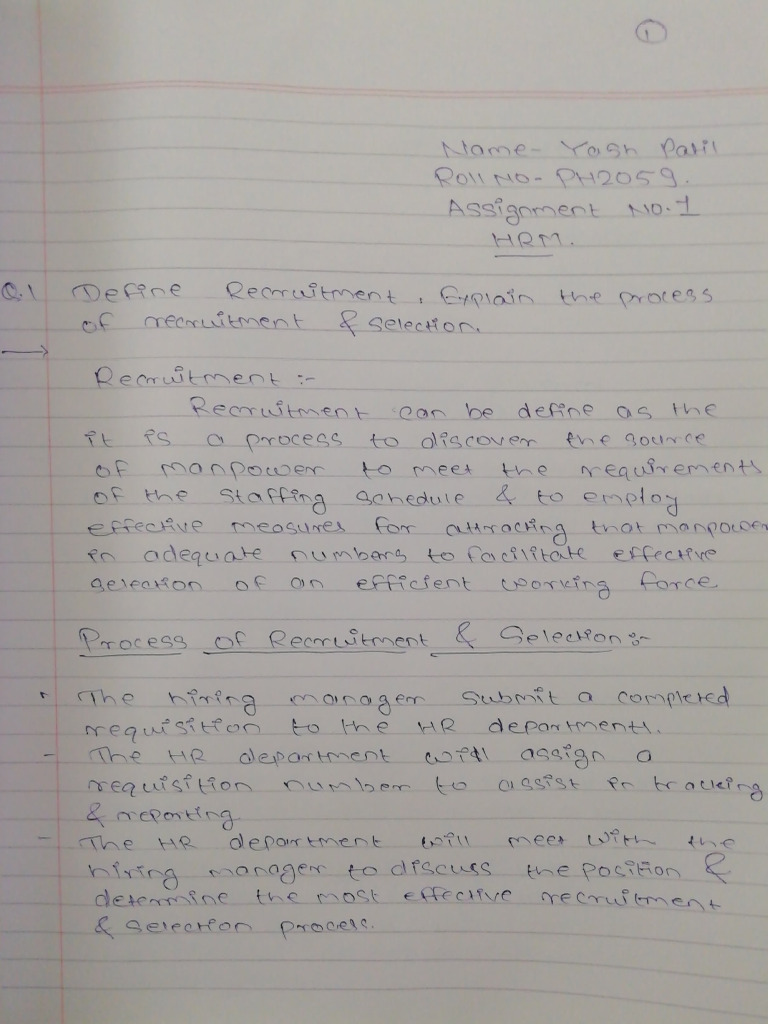 1
Name- Yash Patil
Roll No- PH2059.
Assignment No.1
HRM.
Q.1 Define Recruitment. Explain the process
of recruitment & selection.
→
Recruitment :-
Recruitment can be define as the
it is a process to discover the source
of manpower to meet the requirements
of the staffing schedule & to employ
effective measures for attracting that manpower
in adequate numbers to facilitate effective
selection of an efficient working force
Process of Recruitment & Selection :-
- The hiring manager submit a completed
requisition to the HR department.
- The HR department will assign a
requisition number to assist in tracking
& reporting
- The HR department will meet with the
hiring manager to discuss the position &
determine the most effective recruitment
& selection process.